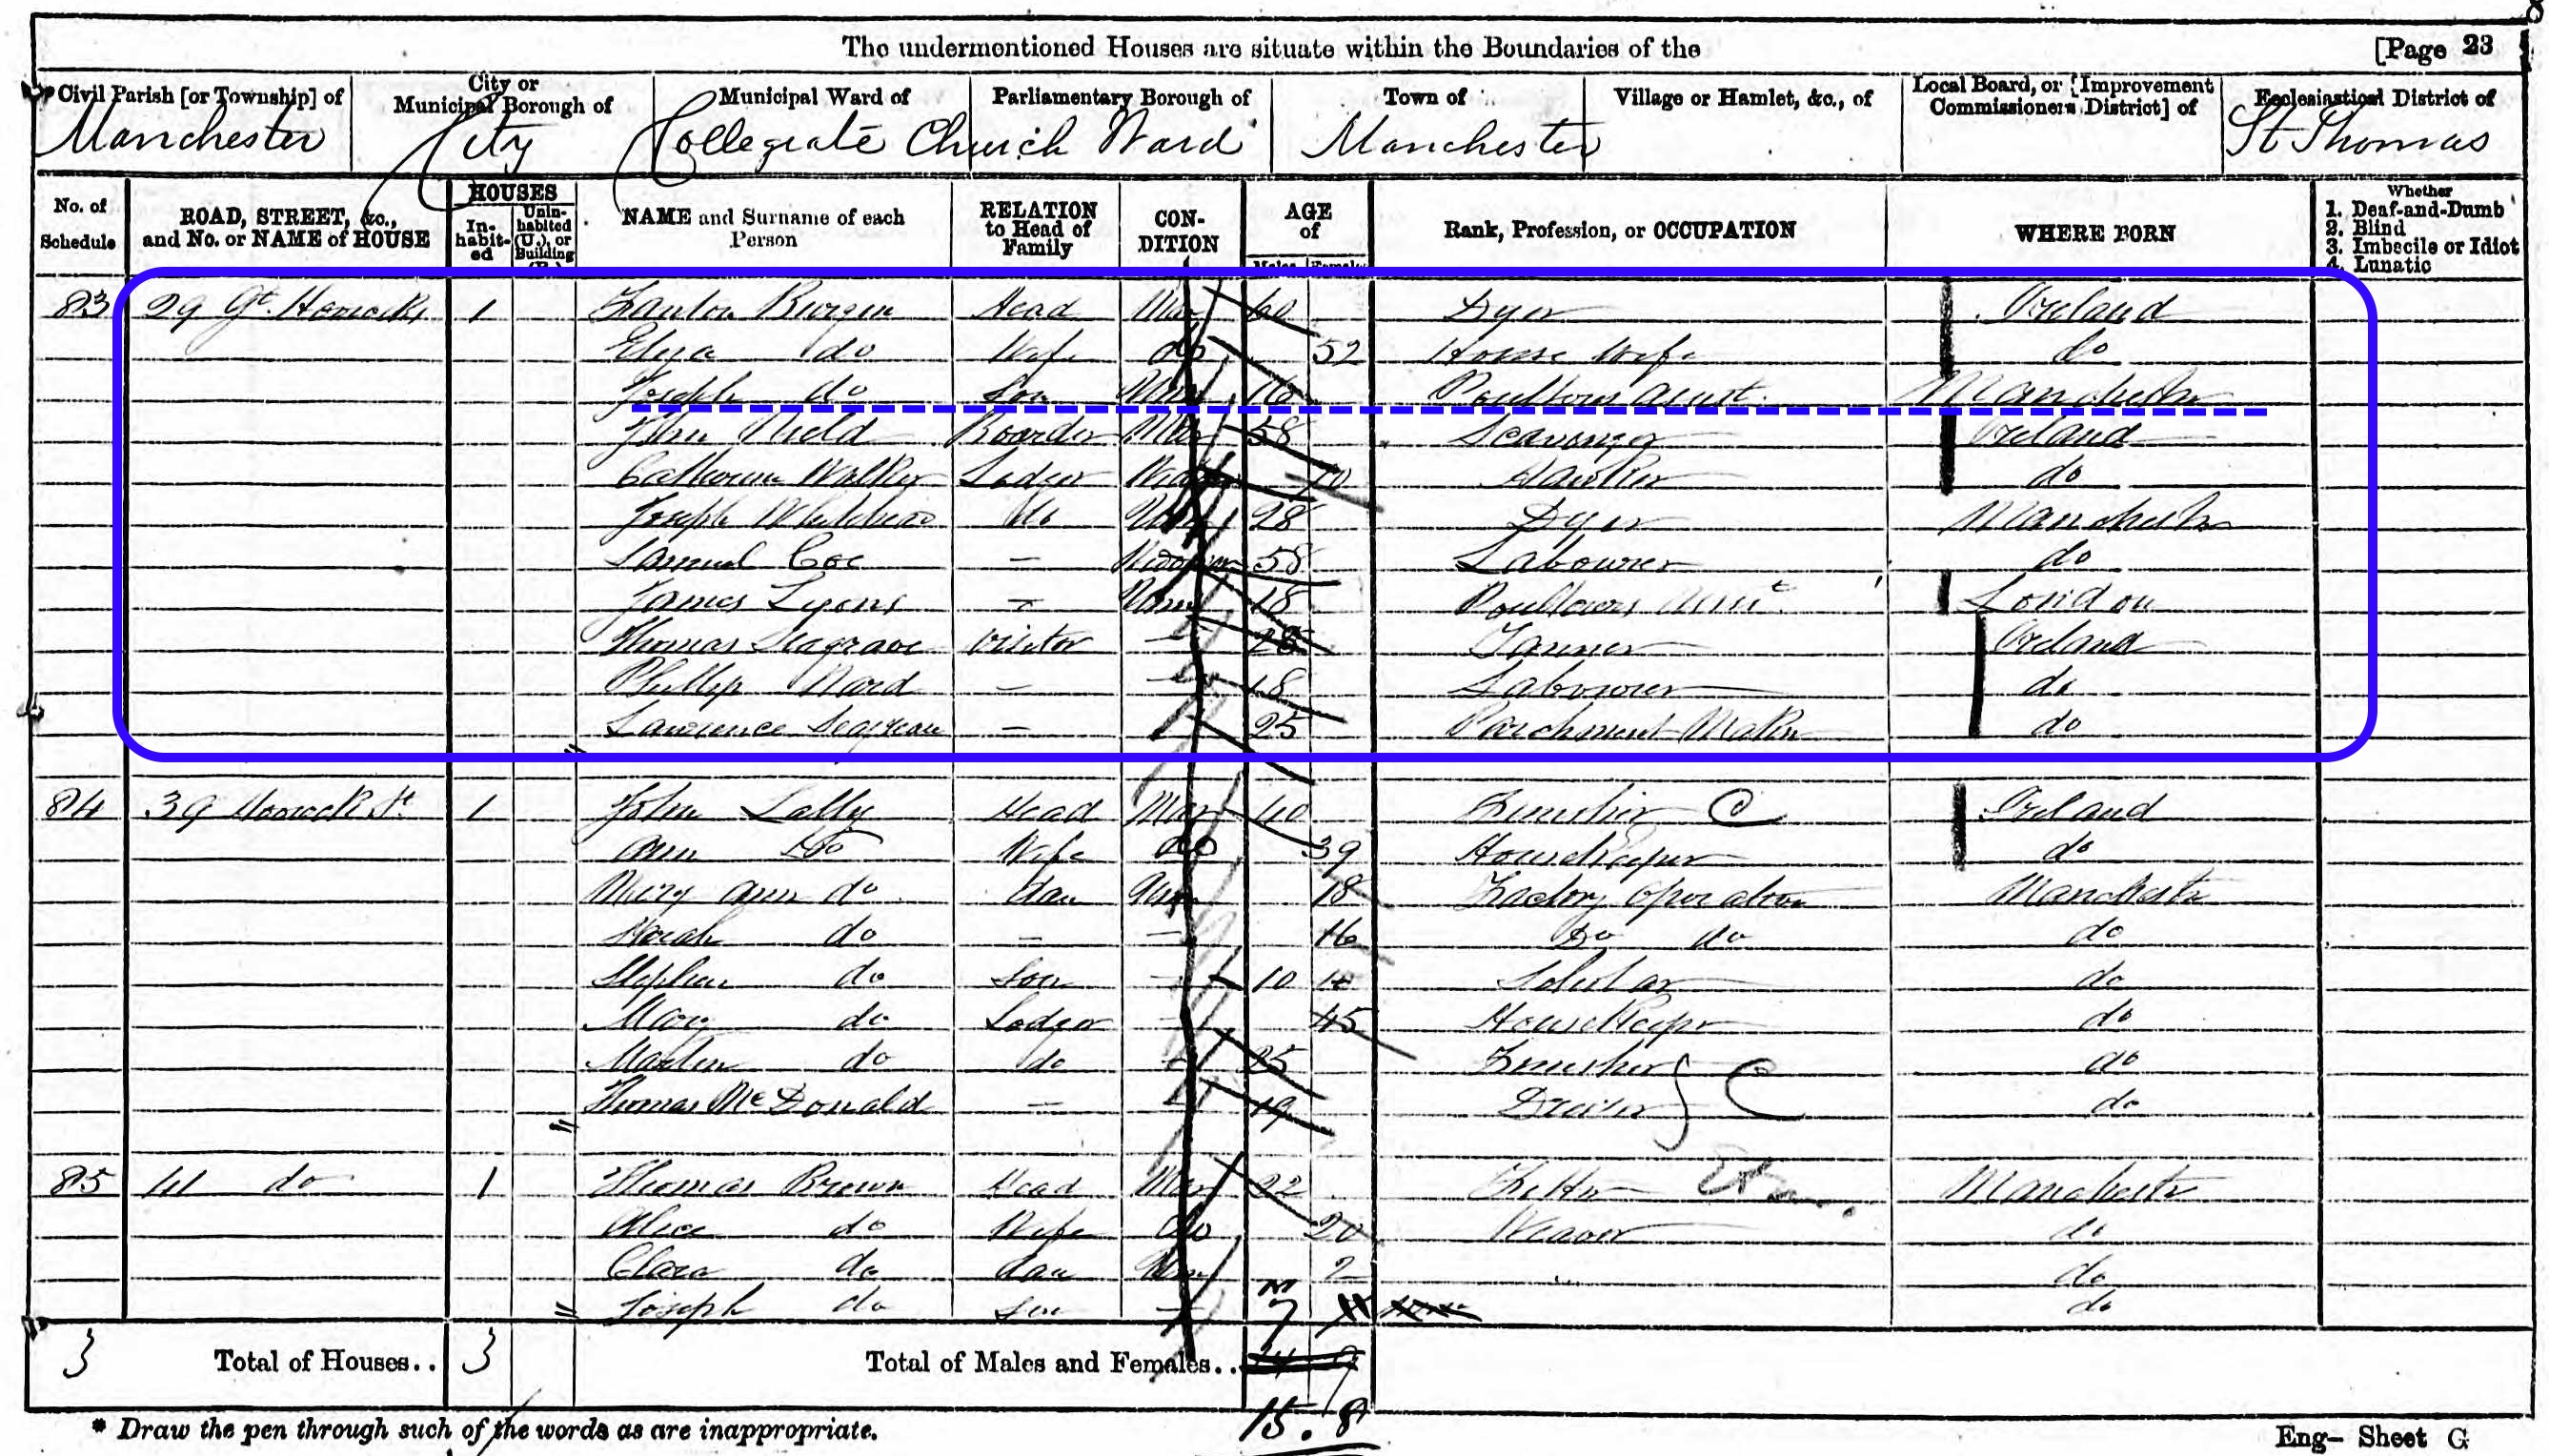 The undermentioned Houses are situate within the Boundaries of the [Page 23
Civil Parish [or Township] of City or Municipal Borough of Municipal Ward of Parliamentary Borough of Town of Village or Hamlet, &c., of Local Board, or [Improvement Commissioners District] of Ecclesiastical District of
Manchester City Collegiate Church Ward Manchester St Thomas
No. of Schedule ROAD, STREET, &c., and No. or NAME of HOUSE HOUSES In-habit-ed Unin-habited (U.), or Building (B.) NAME and Surname of each Person RELATION to Head of Family CON-DITION AGE of Males Females Rank, Profession, or OCCUPATION WHERE BORN Whether 1. Deaf-and-Dumb 2. Blind 3. Imbecile or Idiot 4. Lunatic
83 29 Gt. 1 Head Mar 60 Dyer Ireland
Eliza do Wife do 52 House Wife do
Joseph do Son Unm 16 Manchester
John Boarder 58 Scavenger Ireland
Catherine Walker Lodger 70 Hawker do
Joseph do Unm 28 Dyer Manchester
Samuel Coe – Widower 58 Labourer do
James Lyons – Unm 18 London
Thomas Seagrave Visitor – 28 Tanner Ireland
Phillip Ward – – 18 Labourer do
Lawrence – 25 Parchment Maker do
84 39 1 John Lally Head Mar 40 C Ireland
Ann do Wife do 39 Housekeeper do
Mary Ann do dau Unm 18 Factory Operative Manchester
Norah do – – 16 Do do do
Stephen do Son – 10 Scholar do
Mary do Lodger – 45 Housekeeper do
Martin do do 25 do
Thomas McDonald – 19 C do
85 41 do 1 Thomas Brown Head Mar 22 Manchester
Alice do Wife do 20 Weaver do
Clara do dau Unm 2 do
Joseph do Son – 7 do
3 Total of Houses.. 3 Total of Males and Females..
15. 8
* Draw the pen through such of the words as are inappropriate. Eng- Sheet G